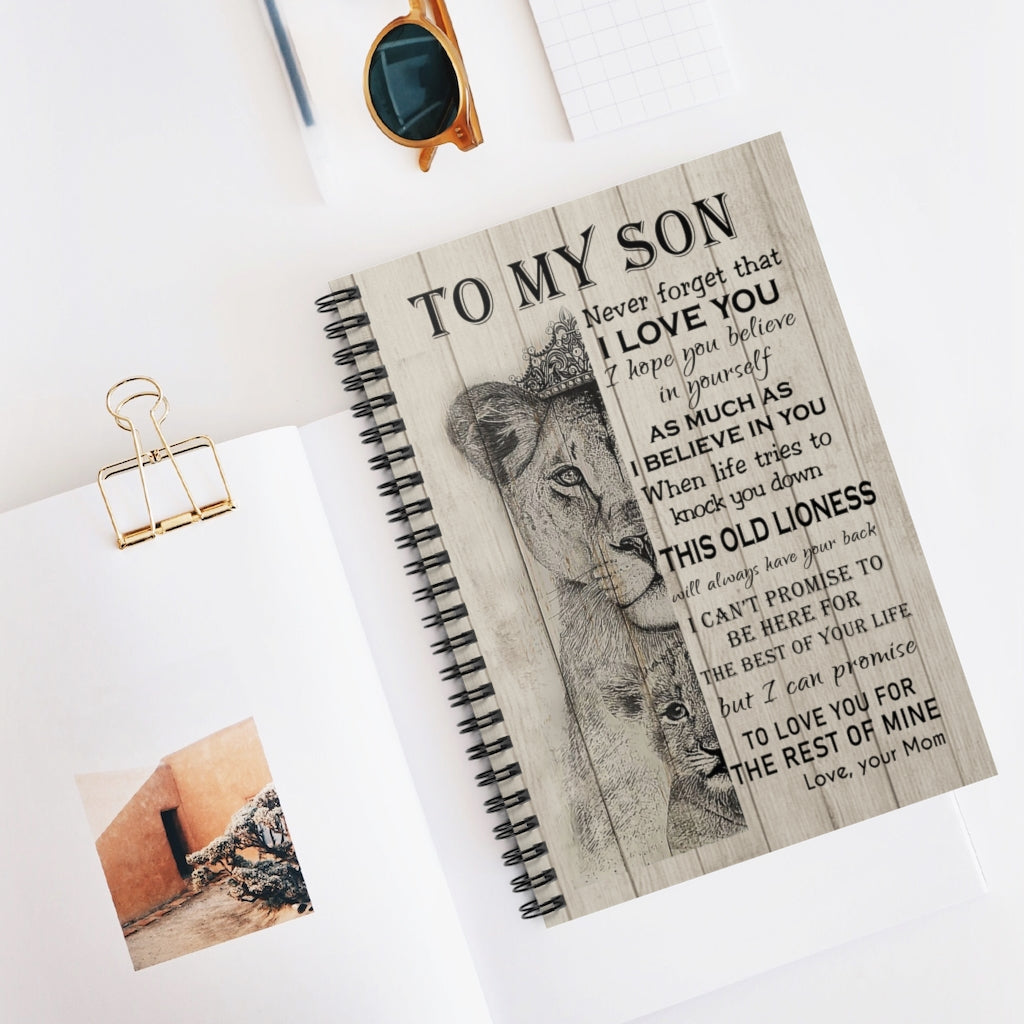 TO MY SON
Never forget that
I LOVE YOU
I hope you believe
in yourself
AS MUCH AS
I BELIEVE IN YOU
When life tries to
knock you down
THIS OLD LIONESS
will always have your back
I CAN'T PROMISE TO
BE HERE FOR
THE BEST OF YOUR LIFE
but I can promise
TO LOVE YOU FOR
THE REST OF MINE
Love, your Mom